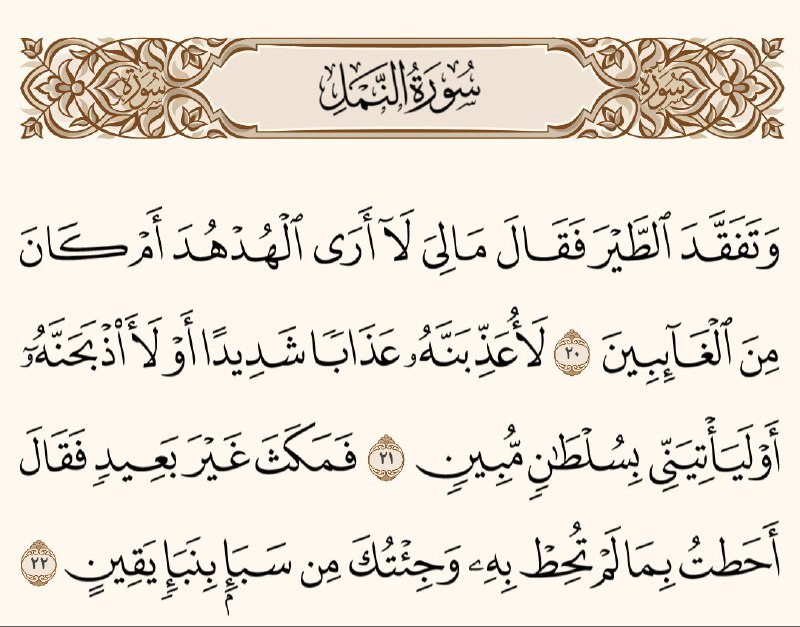 سُورَةُ النَّمۡلِ
سُورَةُ
سُورَةُ
وَتَفَقَّدَ ٱلطَّيۡرَ فَقَالَ مَالِيَ لَآ أَرَى ٱلۡهُدۡهُدَ أَمۡ كَانَ
مِنَ ٱلۡغَآئِبِينَ ٢٠ لَأُعَذِّبَنَّهُۥ عَذَابٗا شَدِيدًا أَوۡ لَأَاْذۡبَحَنَّهُۥٓ
أَوۡ لَيَأۡتِيَنِّي بِسُلۡطَٰنٖ مُّبِينٖ ٢١ فَمَكَثَ غَيۡرَ بَعِيدٖ فَقَالَ
أَحَطتُ بِمَا لَمۡ تُحِطۡ بِهِۦ وَجِئۡتُكَ مِن سَبَإِۭ بِنَبَإٖ يَقِينٍ ٢٢